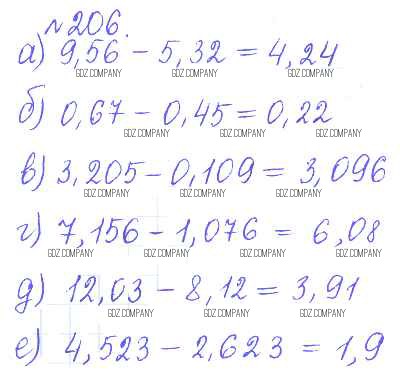 №206.
а) 9,56 - 5,32 = 4,24
GDZ.COMPANY GDZ.COMPANY GDZ.COMPANY
б) 0,67 - 0,45 = 0,22
GDZ.COMPANY GDZ.COMPANY GDZ.COMPANY
в) 3,205 - 0,109 = 3,096
GDZ.COMPANY GDZ.COMPANY GDZ.COMPANY
г) 7,156 - 1,076 = 6,08
GDZ.COMPANY GDZ.COMPANY GDZ.COMPANY GDZ.COMPANY
д) 12,03 - 8,12 = 3,91
GDZ.COMPANY GDZ.COMPANY GDZ.COMPANY
е) 4,523 - 2,623 = 1,9
GDZ.COMPANY GDZ.COMPANY GDZ.COMPANY